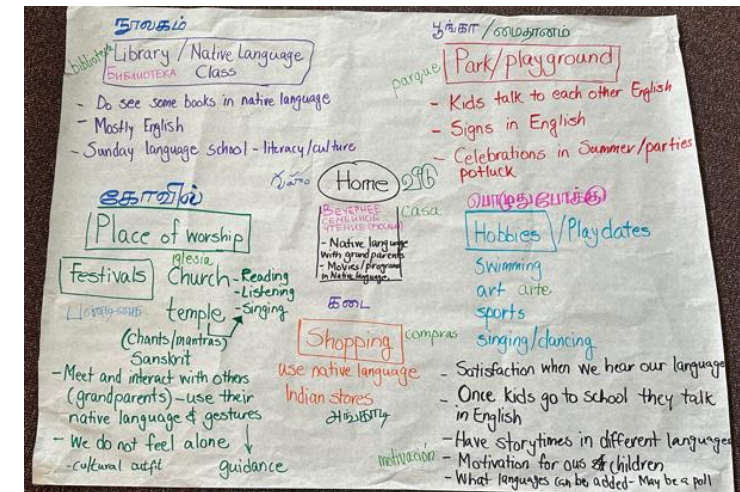 நூலகம்
biblioteca
Library / Native Language
БИБЛИОТЕКА Class
- Do see some books in native language
- Mostly English
- Sunday language school - literacy/culture
பூங்கா / மைதானம்
parque
Park/playground
- Kids talk to each other English
- Signs in English
- Celebrations in Summer/parties
potluck
Home
casa
ВЕЧЕРНЕЕ
СЕМЕЙНОЕ
ЧТЕНИЕ
- Native language
with grandparents
- Movies/programs
in Native language.
கோவில்
Place of worship
iglesia
Festivals Church - Reading
- Listening
temple - Singing
(chants/mantras)
Sanskrit
- Meet and interact with others
(grandparents) - use their
native language & gestures
- We do not feel alone
- cultural outfit guidance
கடை
Shopping compras
use native language
Indian stores
அங்காடி
பொழுதுபோக்கு
Hobbies / Playdates
Swimming
art arte
sports
singing/dancing
- Satisfaction when we hear our language
- Once kids go to school they talk
in English
- Have storytimes in different languages
motivación - Motivation for our children
- What languages can be added - May be a poll